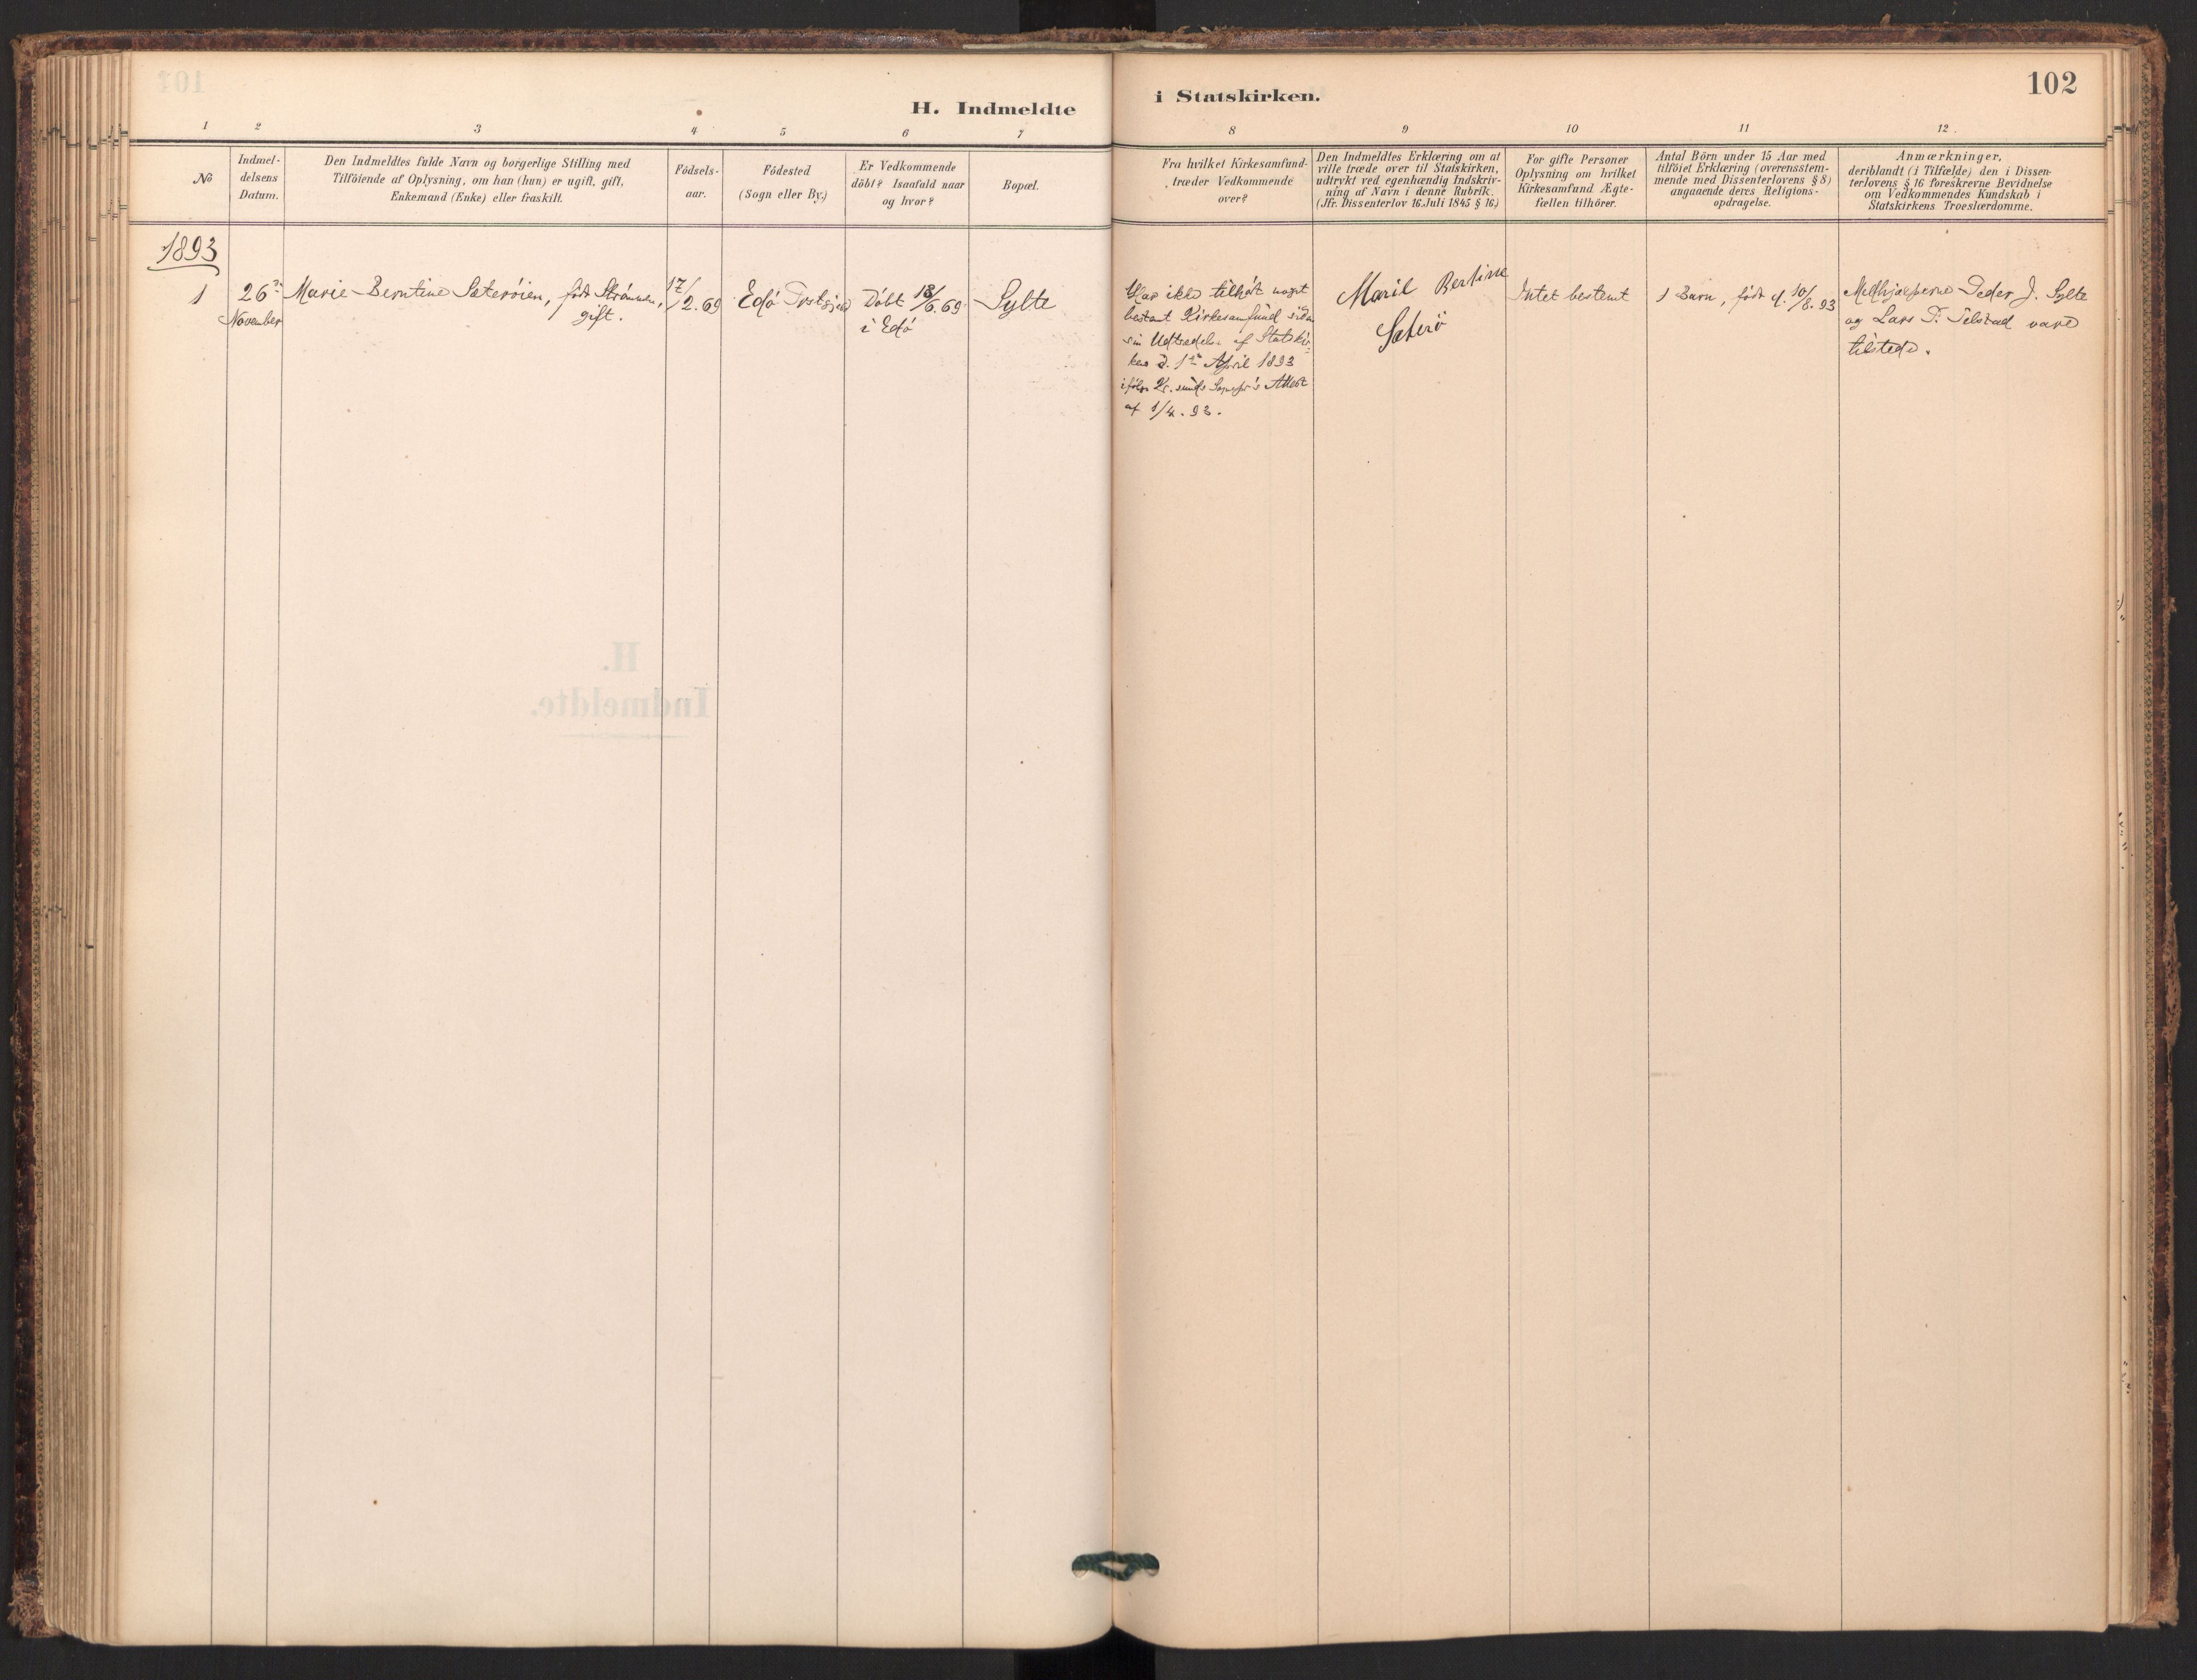 102
H. Indmeldte
i Statskirken.
1
2
3
4
5
6
7
8
9
10
11
12.
No
Indmel-
delsens
Datum.
Den Indmeldtes fulde Navn og borgerlige Stilling med
Tilföiende af Oplysning, om han (hun) er ugift, gift,
Enkemand (Enke) eller fraskilt.
Födsels-
aar.
Födested
(Sogn eller By.)
Er Vedkommende
döbt? Isaafald naar
og hvor?
Bopæl.
Fra hvilket Kirkesamfund
træder Vedkommende
over?
Den Indmeldtes Erklæring om at
ville træde over til Statskirken,
udtrykt ved egenhændig Indskriv-
ning af Navn i denne Rubrik.
(Jfr. Dissenterlov 16. Juli 1845 § 16.)
For gifte Personer
Oplysning om hvilket
Kirkesamfund Ægte-
fællen tilhörer.
Antal Börn under 15 Aar med
tilföiet Erklæring (overensstem-
mende med Dissenterlovens § 8)
angaaende deres Religions-
opdragelse.
Anmærkninger,
deriblandt (i Tilfælde) den i Dissen-
terlovens § 16 foreskrevne Bevidnelse
om Vedkommendes Kundskab i
Statskirkens Troeslærdomme.
1893
1
26de
November
Marie Berntine Sæterøien, født Strømmen,
gift.
17/2.69
Edø Prstgjæld
Døbt 18/6.69
i Edø
Sylte
Har ikke tilhørt noget
bestemt Kirkesamfund siden
sin Udtrædelse af Statskir-
ken d. 1ste April 1893
ifølge Kr.sunds Attest
af 1/4.93.
Marie Bertine
Sæterö
Intet bestemt
1 Barn, født d. 10/8.93
Medhjælperne Peder J. Sylte
og Lars T. Telstad vare
tilstede.
H.
Indmeldte.